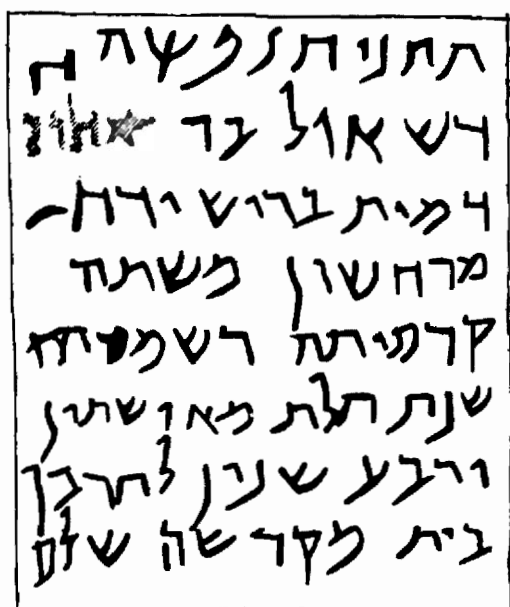 תתניח נפשה
דשאול בר
דמית בריש ירח
מרחשון משתה
קדמיתה דשמטתה
שנת תלת מאו שתין
ורבע שנין לחרבן
בית מקדשה שלם